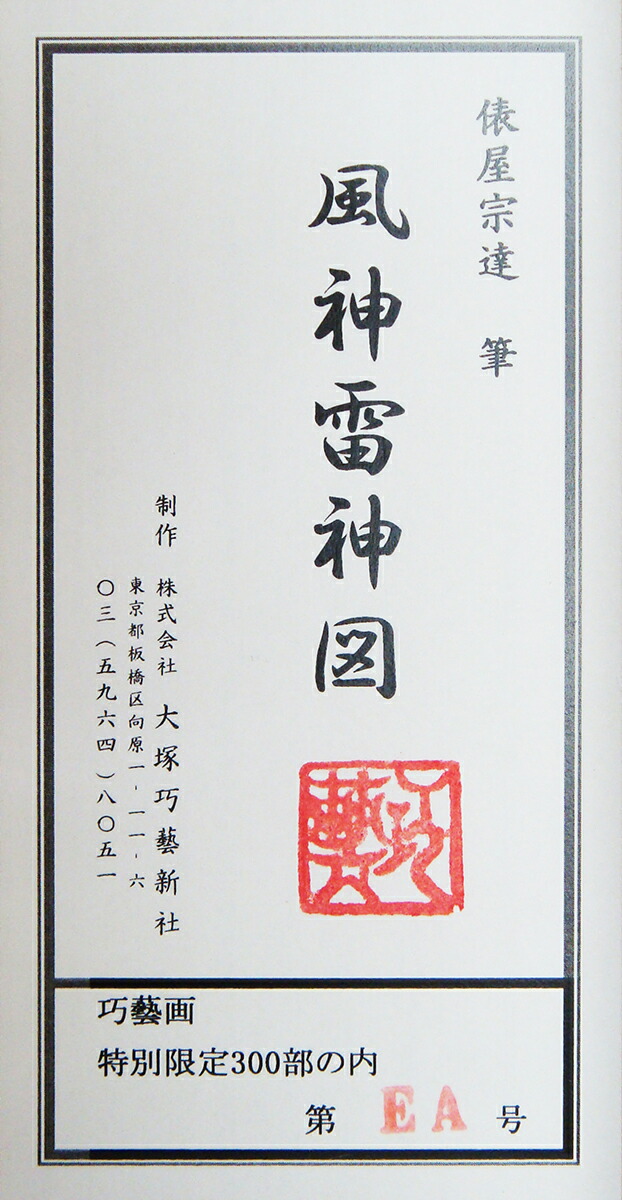 俵屋宗達 筆
風神雷神図
巧藝
制作 株式会社 大塚巧藝新社
東京都板橋区向原一-一一-六
〇三(五九六四)八〇五一
巧藝画
特別限定300部の内
第 EA 号